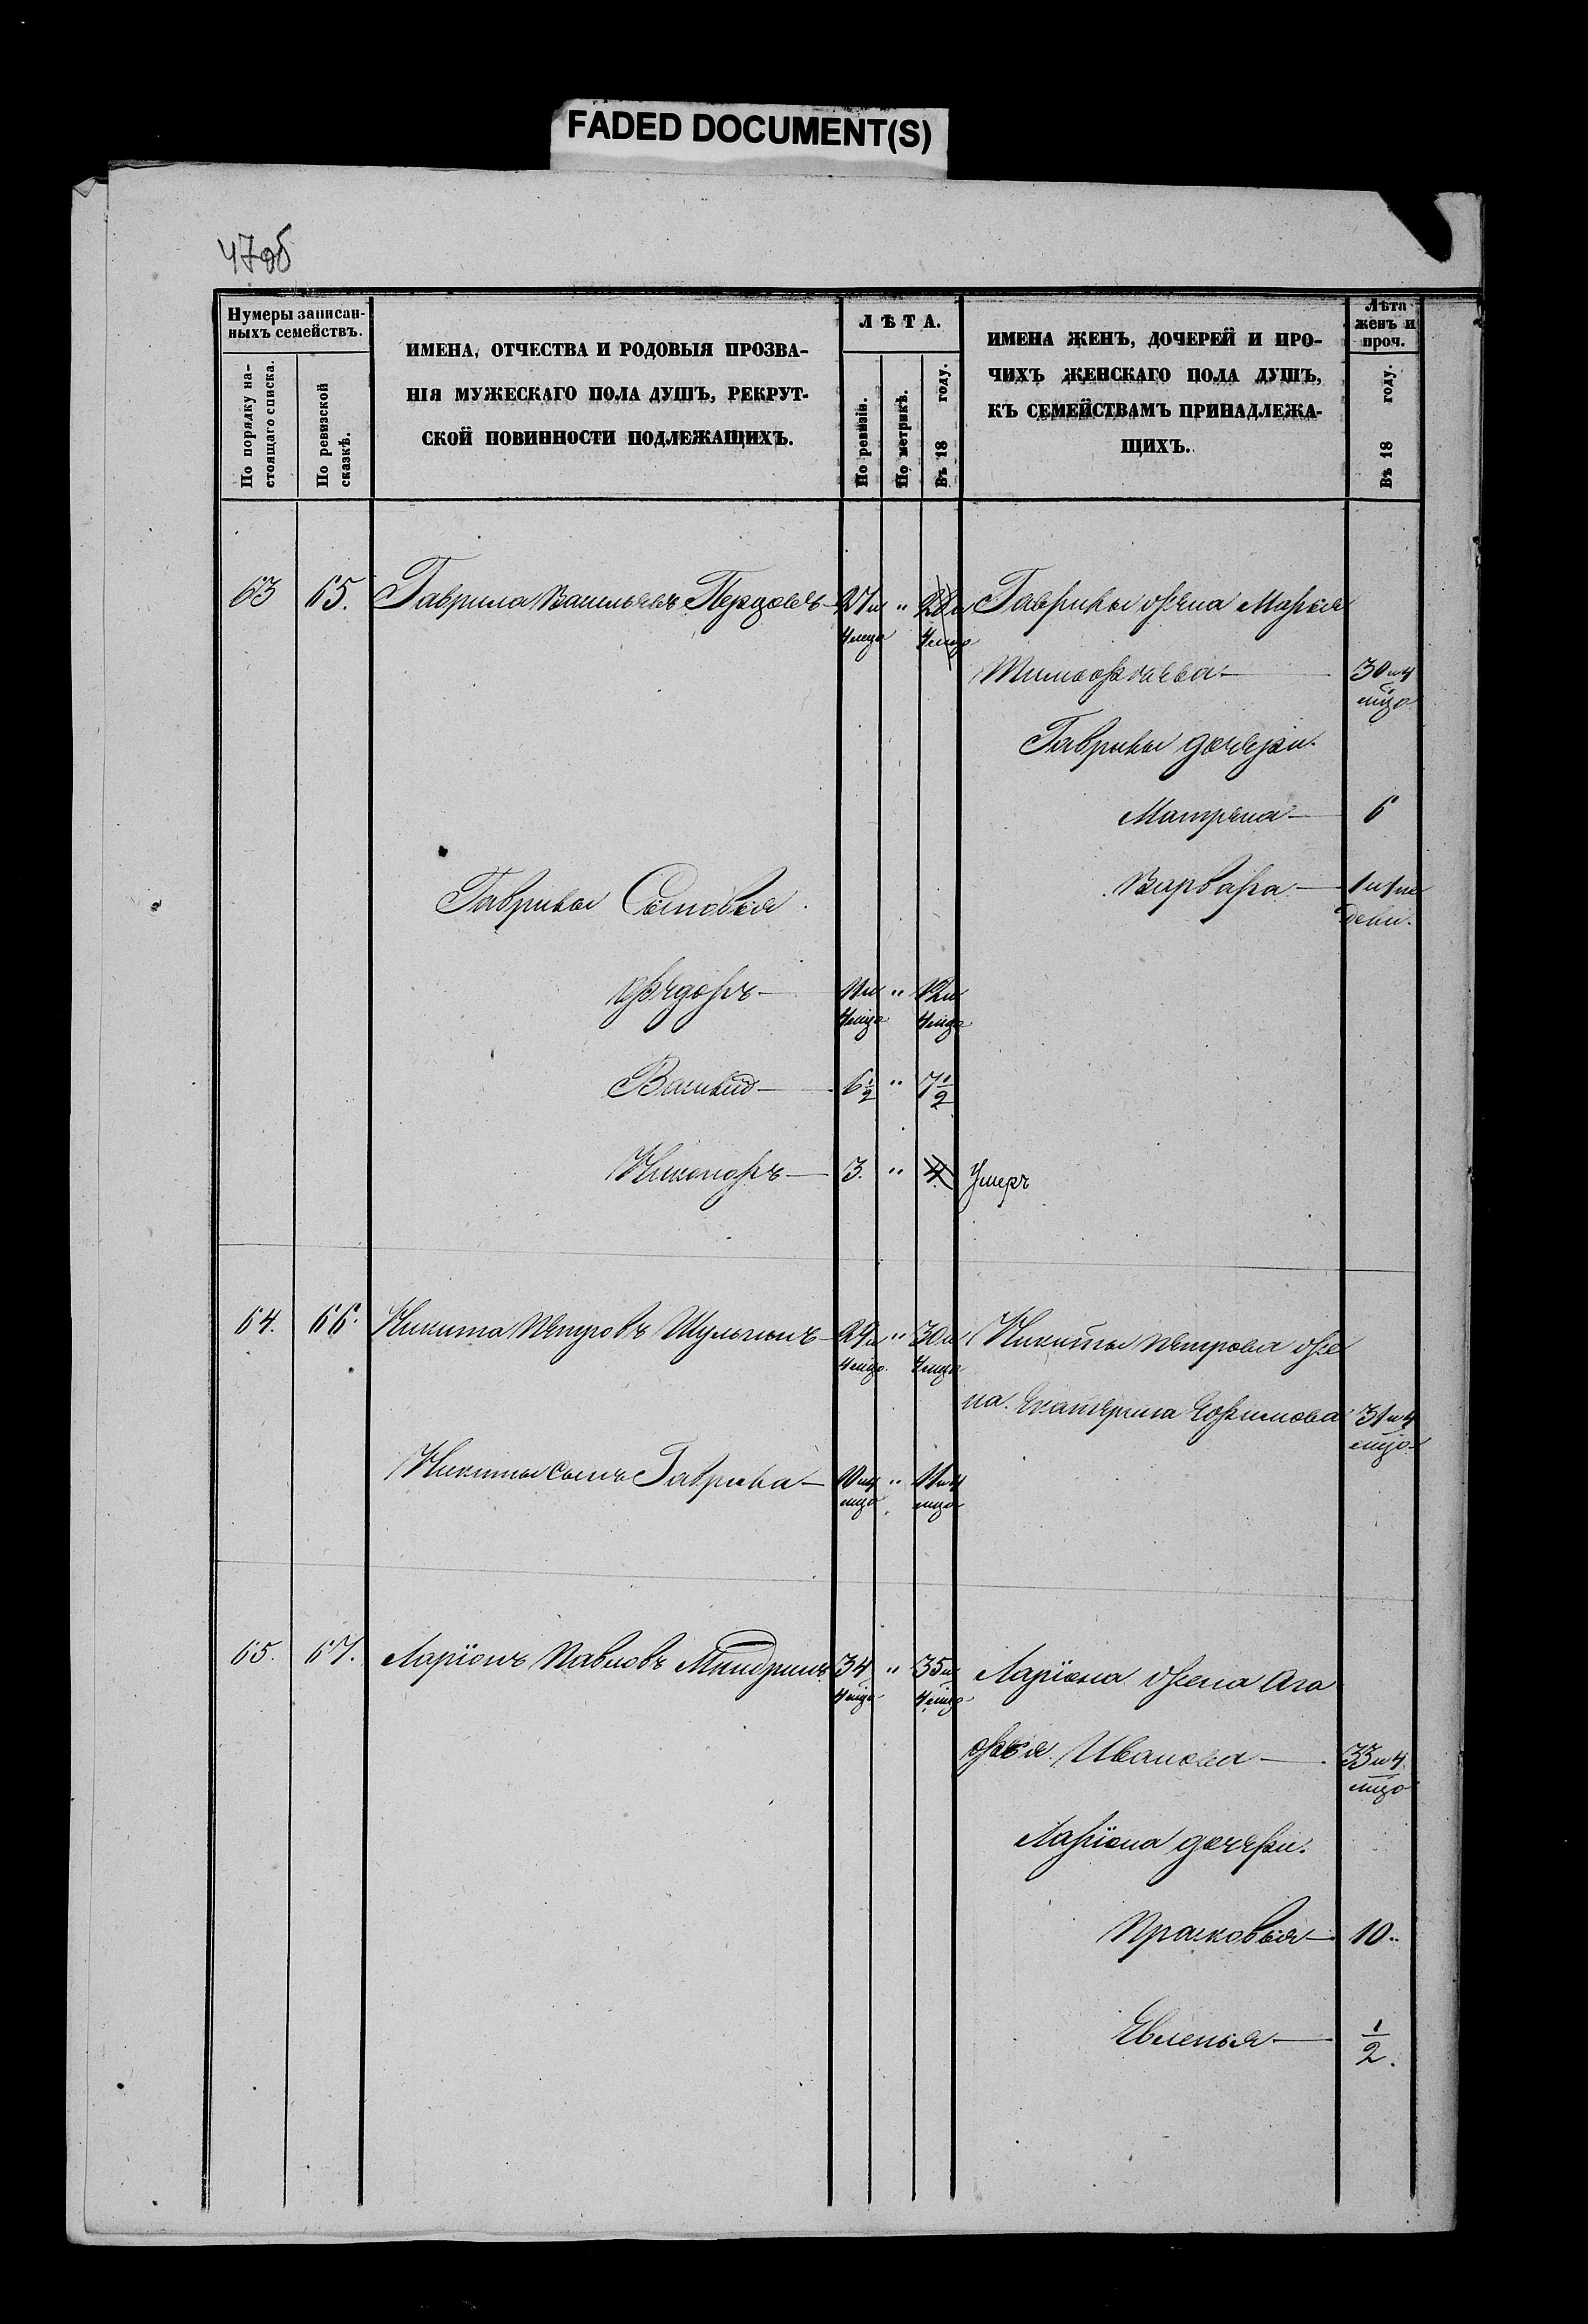 FADED DOCUMENT(S)
47об
Нумеры записан-
ныхъ семействъ.
По порядку на-
стоящаго списка.
По ревизской
сказкѣ.
ИМЕНА, ОТЧЕСТВА И РОДОВЫЯ ПРОЗВА-
НІЯ МУЖЕСКАГО ПОЛА ДУШЪ, РЕКРУТ-
СКОЙ ПОВИННОСТИ ПОДЛЕЖАЩИХЪ.
ЛѢТА.
По ревизіи.
По метрикѣ.
Въ 18 году.
ИМЕНА ЖЕНЪ, ДОЧЕРЕЙ И ПРО-
ЧИХЪ ЖЕНСКАГО ПОЛА ДУШЪ,
КЪ СЕМЕЙСТВАМЪ ПРИНАДЛЕЖА-
ЩИХЪ.
Лѣта
женъ и
проч.
Въ 18 году.
63 65. Гаврила Васильевъ Перцовъ 27 и " 28 и Гаврилы жена Марья
4 мца 4 мца
Тимофеева 30 и 4
мца
Гаврилы дочери
Матрена 6
Варвара 1 и 1 не
дели.
Гаврилы Сыновья
Федоръ 11 и " 12 и
4 мца 4 мца
Василій 6 1/2 " 7 1/2
Никоноръ 3. " 4. Умеръ
64. 66. Никита Петровъ Шульгинъ 29 и " 30 и Никиты Петрова же
4 мца 4 мца
на Екатерина Ефимова 31 и 4
мца
Никиты сынъ Гаврила 10 и 4 " 11 и 4
мца мца
65. 67. Ларіонъ Павловъ Миндринъ 34 " 35 и Ларіона жена Ага
4 мца 4 мца
фья Иванова 33 и 4
мца
Ларіона дочери.
Прасковья 10
Евленья 1/2.